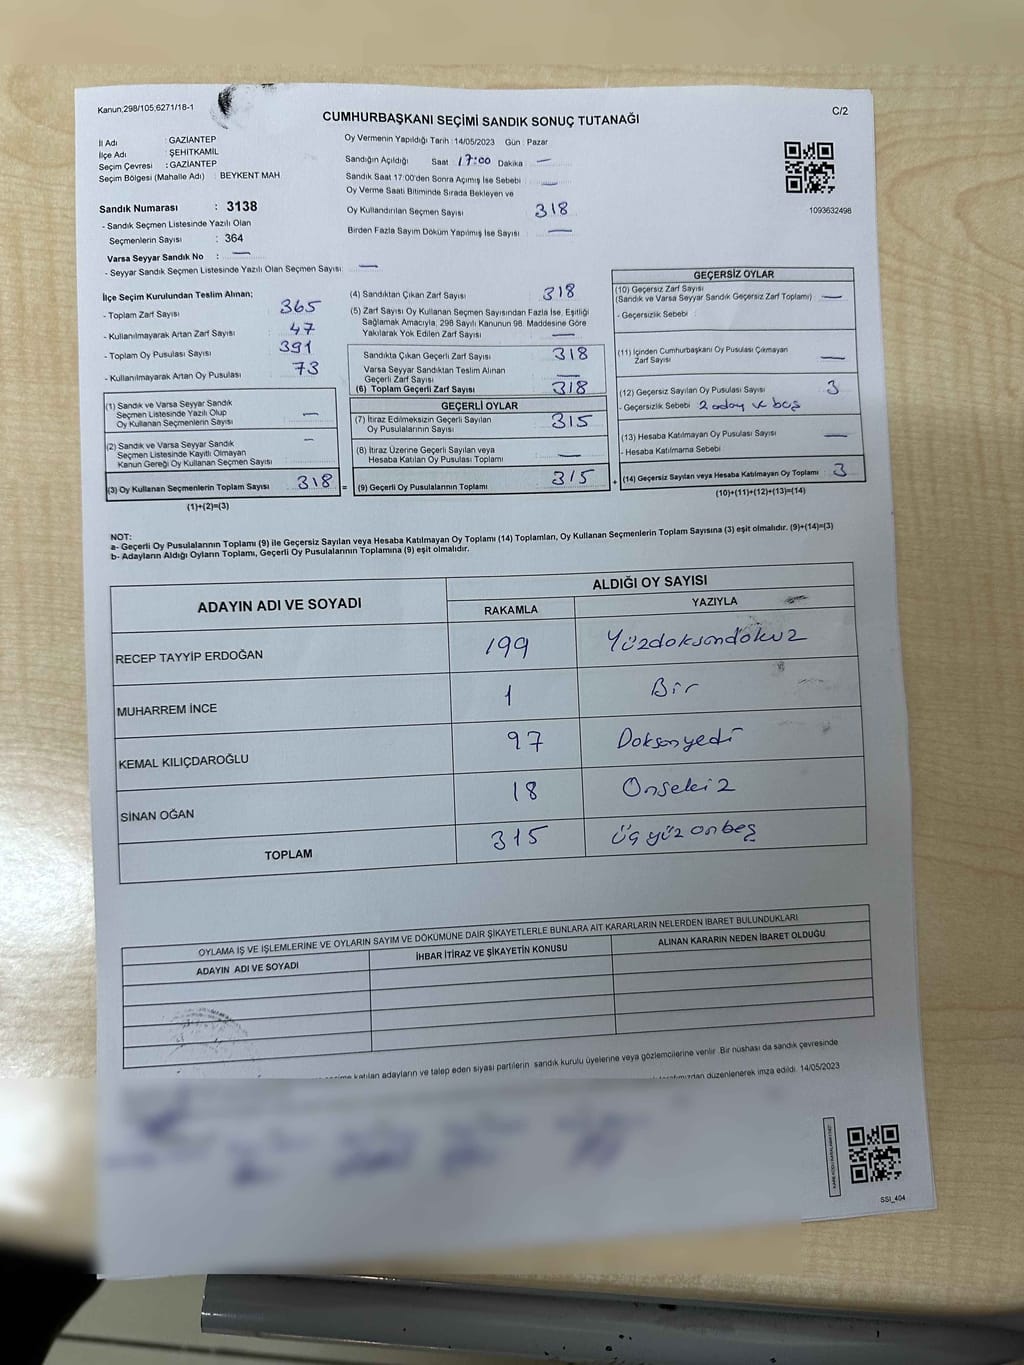 Kanun,298/105,6271/18-1
CUMHURBAŞKANI SEÇİMİ SANDIK SONUÇ TUTANAĞI
C/2
İl Adı : GAZİANTEP
İlçe Adı : ŞEHİTKAMİL
Seçim Çevresi : GAZİANTEP
Seçim Bölgesi (Mahalle Adı) : BEYKENT MAH
Sandık Numarası : 3138
- Sandık Seçmen Listesinde Yazılı Olan
Seçmenlerin Sayısı : 364
Varsa Seyyar Sandık No : —
- Seyyar Sandık Seçmen Listesinde Yazılı Olan Seçmen Sayısı: —
Oy Vermenin Yapıldığı Tarih : 14/05/2023 Gün : Pazar
Sandığın Açıldığı Saat 17:00 Dakika : —
Sandık Saat 17:00'den Sonra Açımış İse Sebebi : —
Oy Verme Saati Bitiminde Sırada Bekleyen ve
Oy Kullandırılan Seçmen Sayısı 318
Birden Fazla Sayım Döküm Yapılmış İse Sayısı : —
1093632496
İlçe Seçim Kurulundan Teslim Alınan;
- Toplam Zarf Sayısı 365
- Kullanılmayarak Artan Zarf Sayısı 47
- Toplam Oy Pusulası Sayısı 391
- Kullanılmayarak Artan Oy Pusulası 73
(1) Sandık ve Varsa Seyyar Sandık
Seçmen Listesinde Yazılı Olup
Oy Kullanan Seçmenlerin Sayısı —
(2) Sandık ve Varsa Seyyar Sandık
Seçmen Listesinde Kayıtlı Olmayan
Kanun Gereği Oy Kullanan Seçmen Sayısı —
(3) Oy Kullanan Seçmenlerin Toplam Sayısı 318 =
(1)+(2)=(3)
(4) Sandıktan Çıkan Zarf Sayısı 318
(5) Zarf Sayısı Oy Kullanan Seçmen Sayısından Fazla İse, Eşitliği
Sağlamak Amacıyla, 298 Sayılı Kanunun 98. Maddesine Göre
Yakılarak Yok Edilen Zarf Sayısı —
Sandıkta Çıkan Geçerli Zarf Sayısı 318
Varsa Seyyar Sandıktan Teslim Alınan
Geçerli Zarf Sayısı —
(6) Toplam Geçerli Zarf Sayısı 318
GEÇERLİ OYLAR
(7) İtiraz Edilmeksizin Geçerli Sayılan
Oy Pusulalarının Sayısı 315
(8) İtiraz Üzerine Geçerli Sayılan veya
Hesaba Katılan Oy Pusulası Toplamı —
(9) Geçerli Oy Pusulalarının Toplamı 315 +
GEÇERSİZ OYLAR
(10) Geçersiz Zarf Sayısı
(Sandık ve Varsa Seyyar Sandık Geçersiz Zarf Toplamı) —
- Geçersizlik Sebebi :
(11) İçinden Cumhurbaşkanı Oy Pusulası Çıkmayan
Zarf Sayısı —
(12) Geçersiz Sayılan Oy Pusulası Sayısı 3
- Geçersizlik Sebebi 2 aday ve boş
(13) Hesaba Katılmayan Oy Pusulası Sayısı —
- Hesaba Katılmama Sebebi
(14) Geçersiz Sayılan veya Hesaba Katılmayan Oy Toplamı 3
(10)+(11)+(12)+(13)=(14)
NOT:
a- Geçerli Oy Pusulalarının Toplamı (9) ile Geçersiz Sayılan veya Hesaba Katılmayan Oy Toplamı (14) Toplamları, Oy Kullanan Seçmenlerin Toplam Sayısına (3) eşit olmalıdır. (9)+(14)=(3)
b- Adayların Aldığı Oyların Toplamı, Geçerli Oy Pusulalarının Toplamına (9) eşit olmalıdır.
ADAYIN ADI VE SOYADI
ALDIĞI OY SAYISI
RAKAMLA YAZIYLA
RECEP TAYYİP ERDOĞAN 199 Yüzdoksandokuz
MUHARREM İNCE 1 Bir
KEMAL KILIÇDAROĞLU 97 Doksanyedi
SİNAN OĞAN 18 Onsekiz
TOPLAM 315 üçyüz onbeş
OYLAMA İŞ VE İŞLEMLERİNE VE OYLARIN SAYIM VE DÖKÜMÜNE DAİR ŞİKAYETLERLE BUNLARA AİT KARARLARIN NELERDEN İBARET BULUNDUKLARI
ADAYIN ADI VE SOYADI İHBAR İTİRAZ VE ŞİKAYETİN KONUSU ALINAN KARARIN NEDEN İBARET OLDUĞU
katılan adayların ve talep eden siyasi partilerin sandık kurulu üyelerine veya gözlemcilerine verilir. Bir nüshası da sandık çevresinde
düzenlenerek imza edildi. 14/05/2023
SSI_404